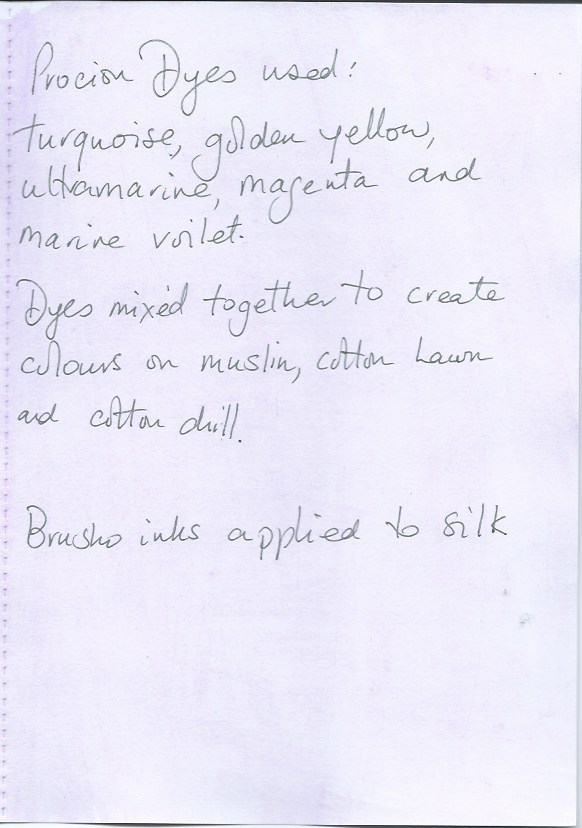 Procion Dyes used:
turquoise, golden yellow,
ultramarine, magenta and
marine voilet.
Dyes mixed together to create
colours on muslin, cotton Lawn
and cotton drill.
Brusho inks applied to silk